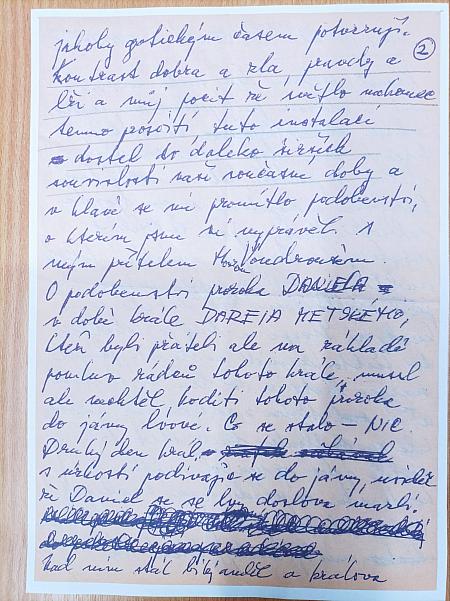 jakoby gotickým časem potvrzují.
2
Kontrast dobra a zla, pravdy a
lži a můj pocit že světlo nakonec
temno pohltí tuto instalaci
dostal do daleko širších
souvislostí naší současné doby a
v hlavě se mi promítlo podobenství,
o kterém jsme si vyprávěli s
mým přítelem
O podobenství proroka DANIELA
v době krále DAREIA METSKÉHO,
kteří byli přáteli ale na základě
pomluv rádců tohoto krále, musel
ale nechtěl hoditi tohoto proroka
do jámy lvové. Co se stalo – NIC.
Druhý den král
s úzkostí podívajíc se do jámy, uviděl
že Daniel se se lvy doslova mazlí.
Nad ním stál bílý anděl a králova